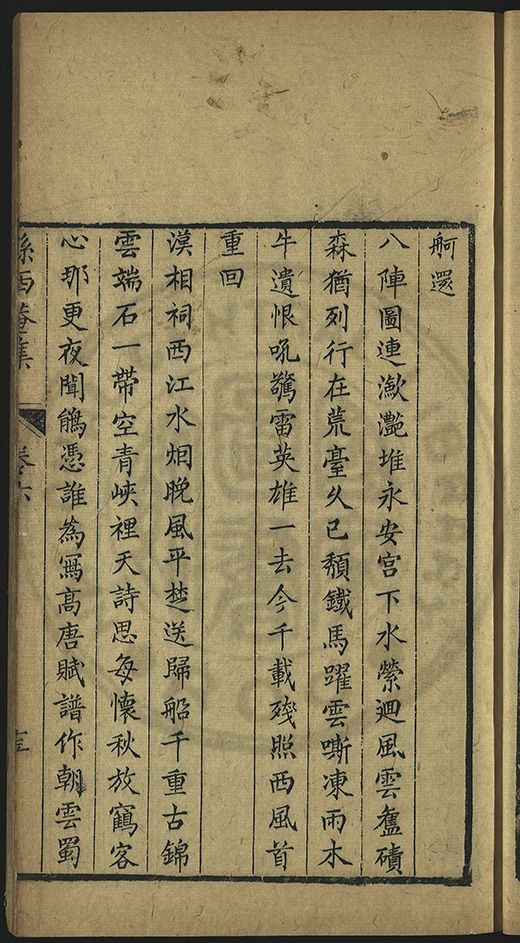 舸還
八陣圖連瀲灔堆永安宫下水縈迴風雲舊磧
森猶列行在荒臺久已頹鐵馬躍雲嘶凍雨木
牛遺恨吼驚雷英雄一去今千載殘照西風首
重回
漢相祠西江水烟晚風平楚送歸船千重古錦
雲端石一帶空青峽裡天詩思每懷秋放鶴客
心那更夜聞鵑憑誰為寫高唐賦譜作朝雲蜀
孫西菴集
卷六